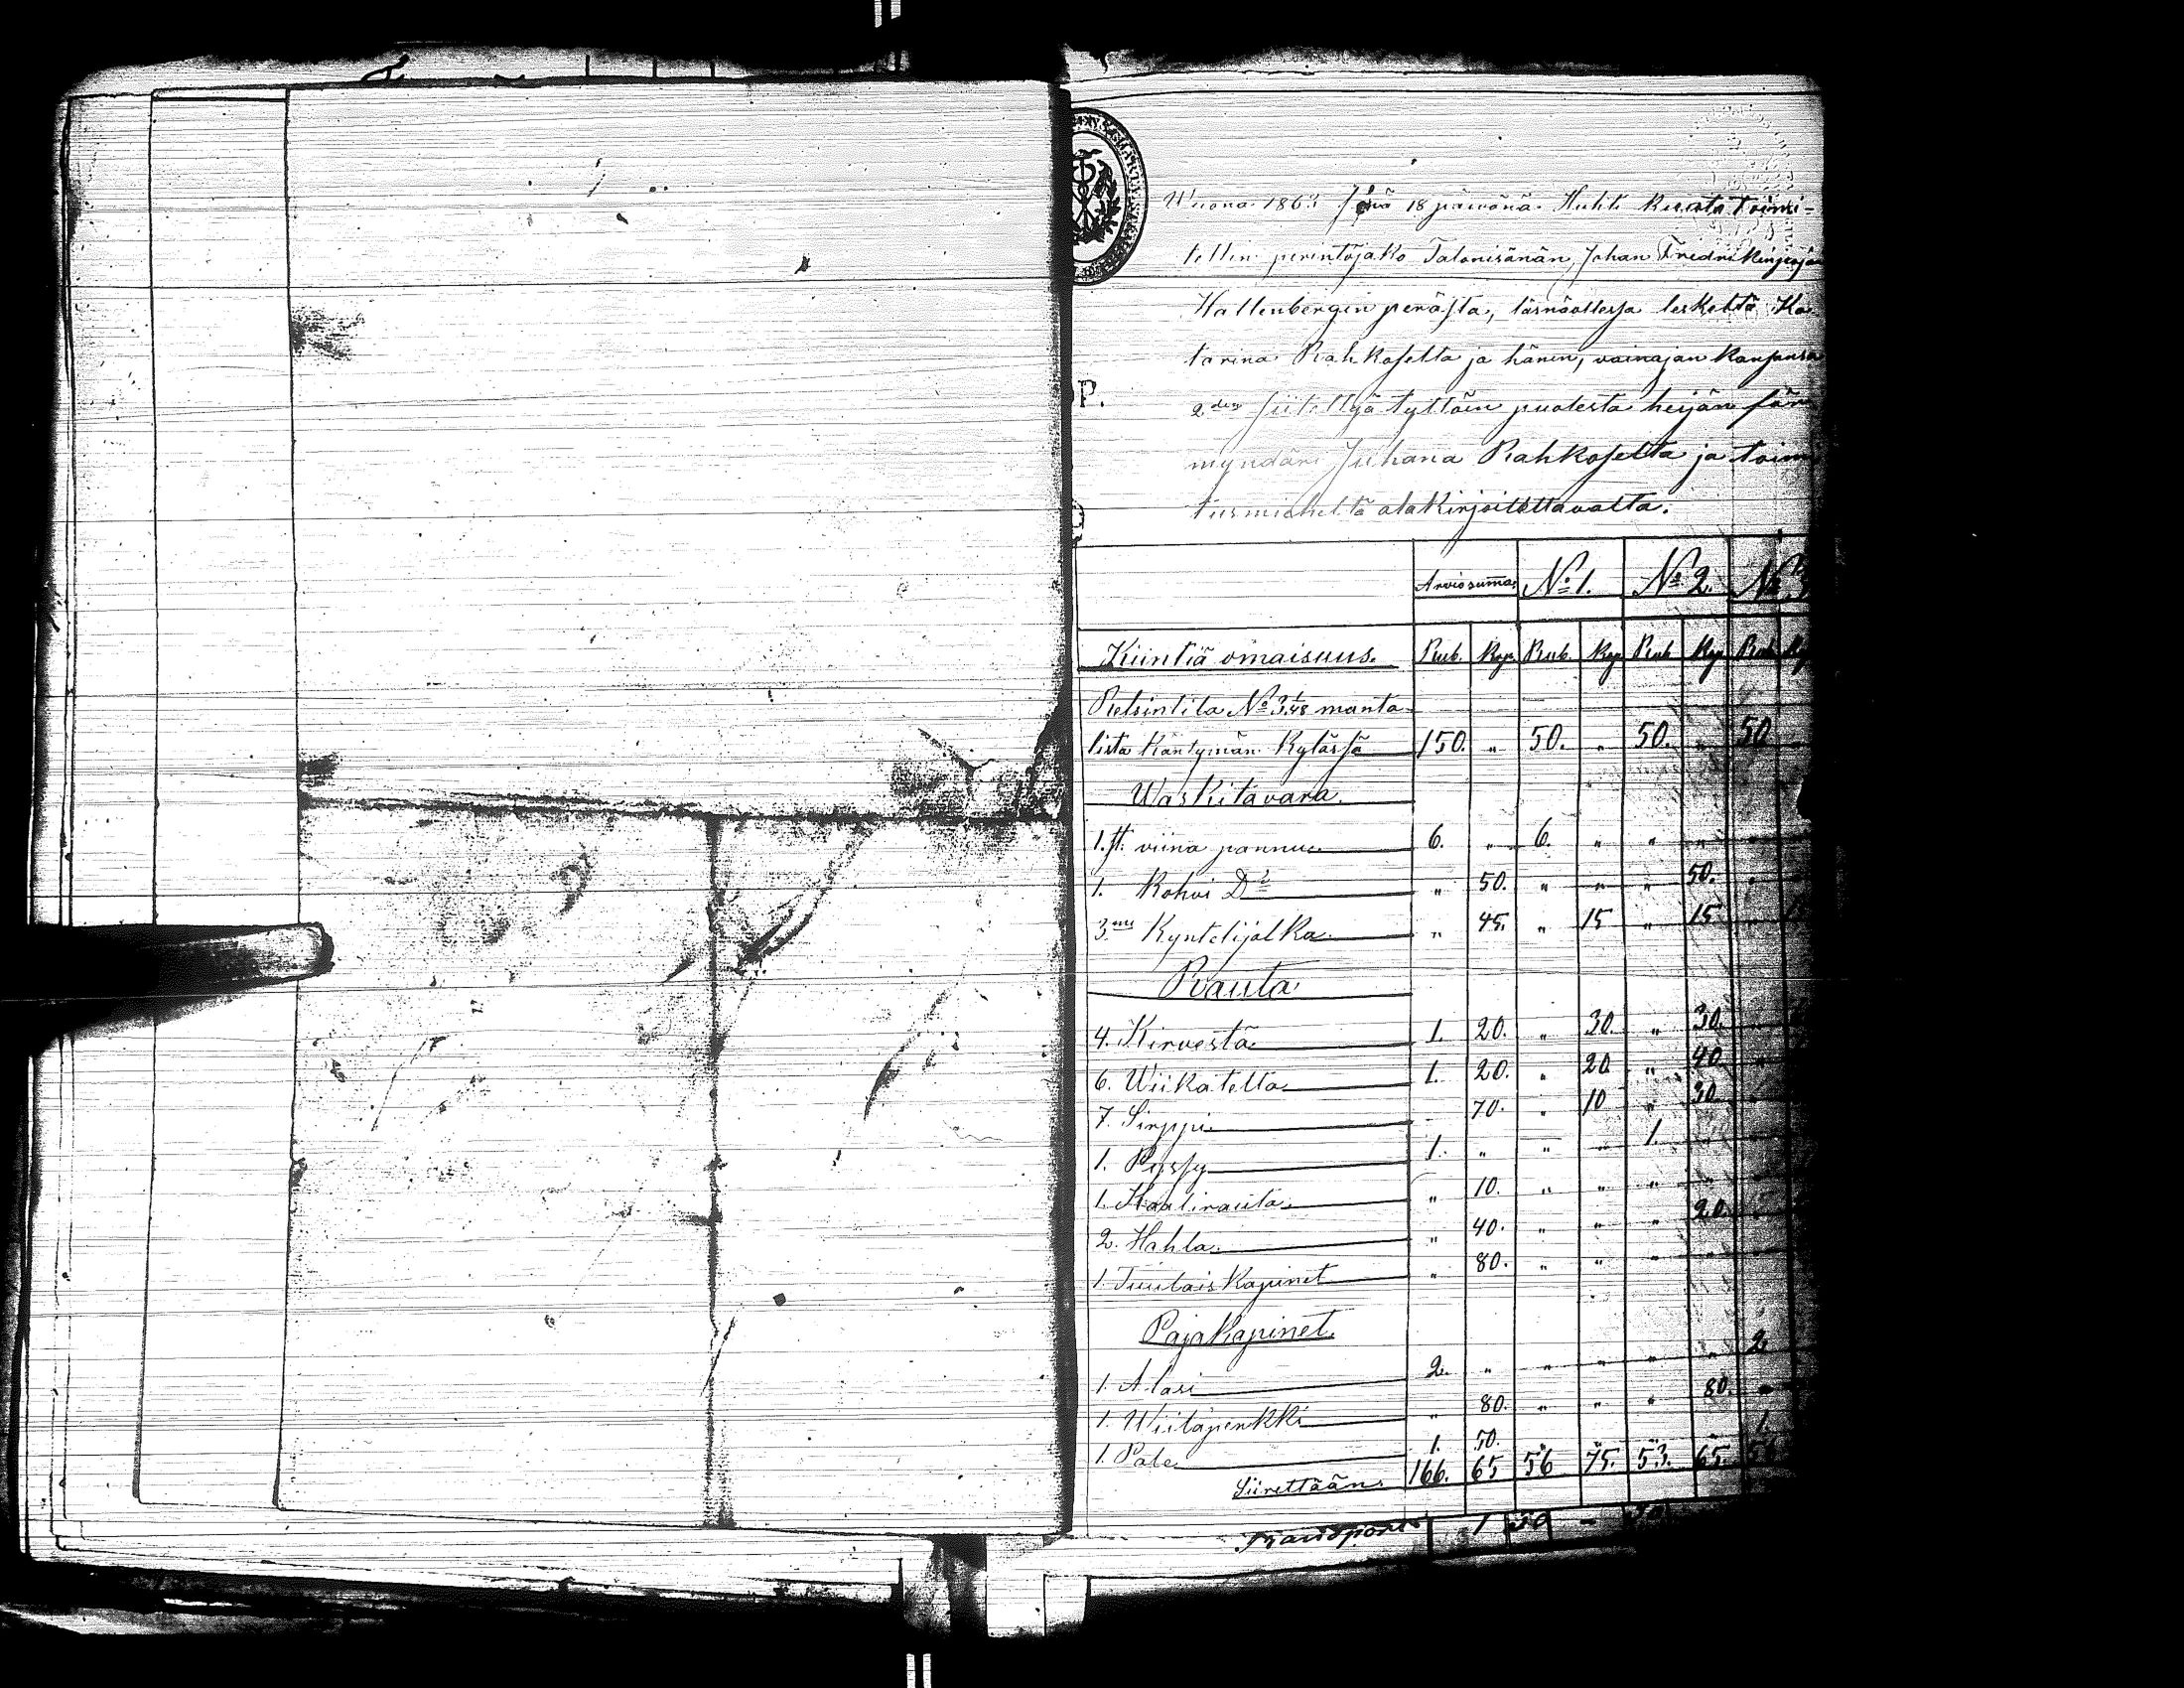 Wuona 1863 Jnä 18 päivänä Huhti Kuuta toimi-
tettin perintöjako Talonisänän, Johan Fredrik
Hallenbergin perästä, läsnäollessa leskeltä Ka-
tarina Rahkoselta ja hänen, vainajan kanssansa
2den siitettyä tyttöin puolesta heijän för-
myndäri Juhana Rahkoselta ja toimi
tusmieheltä alakirjoitettavalta.
Arviosumma. No 1. No 2. No 3.
Kiintiä omaisuus. Rub. Kop. Rub. Kop Rub Kop Rub Kop
Relsintila No 3. 1/48 manta
lista Käntymän Kylässä 150. " 50. " 50. " 50
Waskitavara.
1. st. viina pannu 6. " 6. " " "
1. Kohvi Do " 50. " " " 50. "
3.me Kyntelijalka " 45. " 15 " 15
Rauta
4. Kirvestä 1. 20. " 30. " 30.
6. Wiikatetta 1. 20. " 20 " 40
7. Sirppi 70. " 10 " 30
1. Pyssy 1. " " " 1.
1. Haalirauta " 10. " " " "
2. Hahla " 40. " " " 20.
1. Tuulais Kapinet " 80. " " " "
PajaKapinet.
1. Alasi 2. " " " " " 2.
1. Wiiläpenkki " 80. " " " 80. "
1. Pale 1. 50. " " " " 1.
Siirettään 166. 65 56 75. 53. 65.
Transport 1 50 -
P.